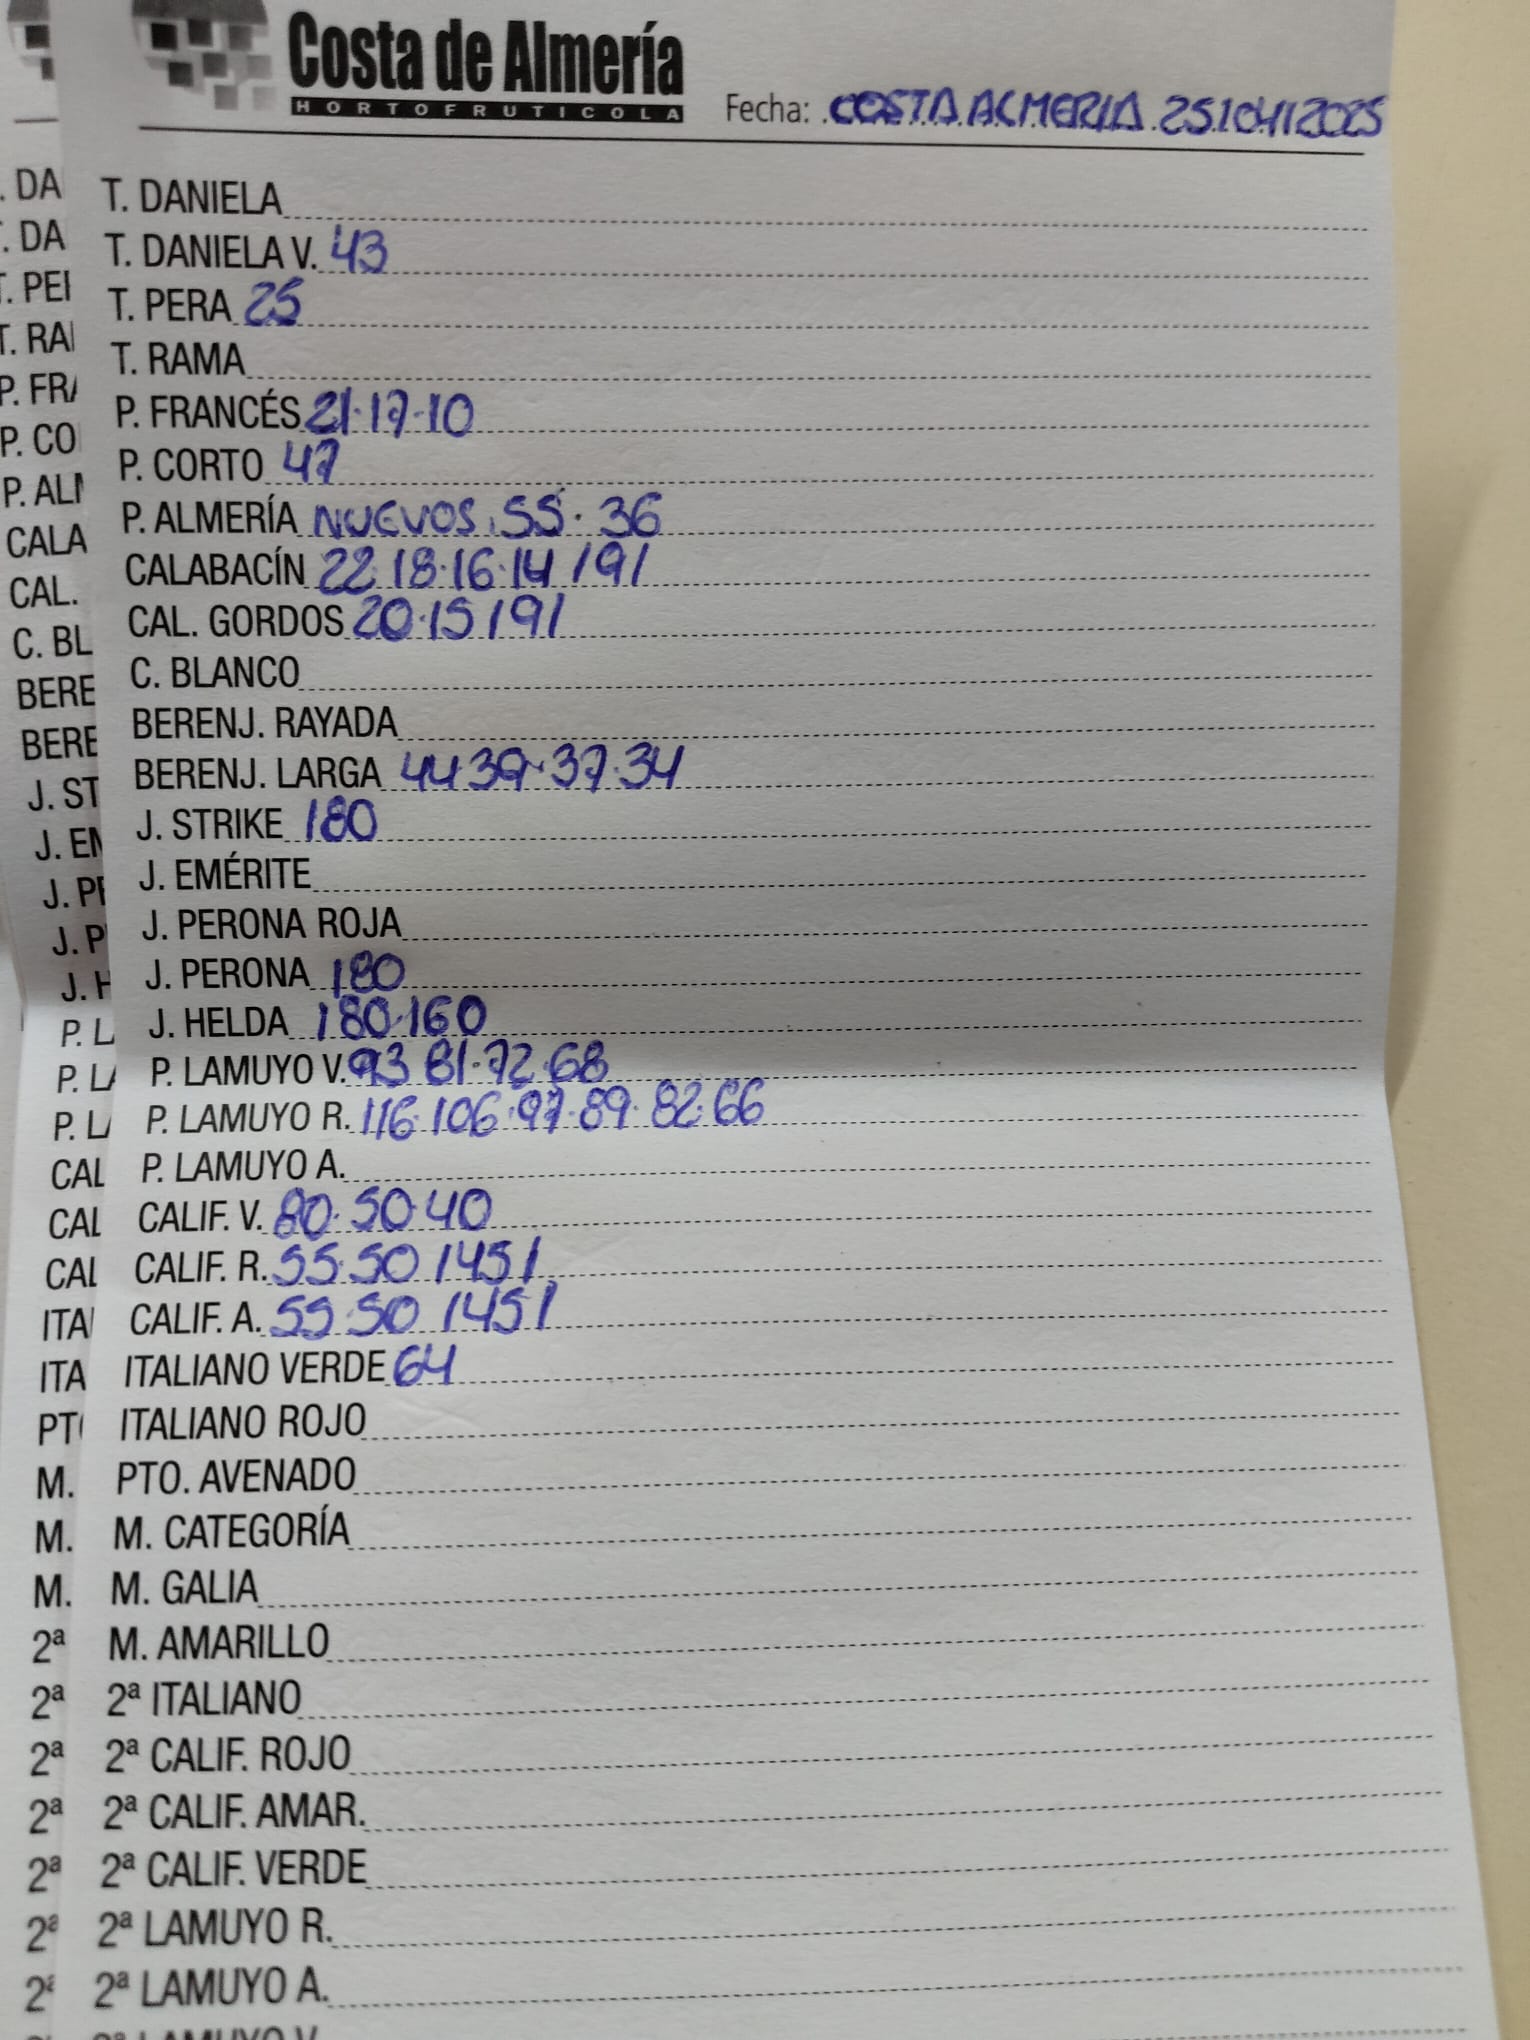 Costa de Almería
HORTOFRUTICOLA
Fecha: COSTA ALMERIA 25/04/2025
T. DANIELA
T. DANIELA V. 43
T. PERA 25
T. RAMA
P. FRANCÉS 21·17·10
P. CORTO 47
P. ALMERÍA NUEVOS 55·36
CALABACÍN 22·18·16·14 /9/
CAL. GORDOS 20·15 /9/
C. BLANCO
BERENJ. RAYADA
BERENJ. LARGA 44·39·37·34
J. STRIKE 180
J. EMÉRITE
J. PERONA ROJA
J. PERONA 180
J. HELDA 180·160
P. LAMUYO V. 93 81·72·68
P. LAMUYO R. 116·106·97·89·82·66
P. LAMUYO A.
CALIF. V. 80·50·40
CALIF. R. 55·50 /45/
CALIF. A. 55·50 /45/
ITALIANO VERDE 64
ITALIANO ROJO
PTO. AVENADO
M. CATEGORÍA
M. GALIA
M. AMARILLO
2ª ITALIANO
2ª CALIF. ROJO
2ª CALIF. AMAR.
2ª CALIF. VERDE
2ª LAMUYO R.
2ª LAMUYO A.
2ª LAMUYO V.